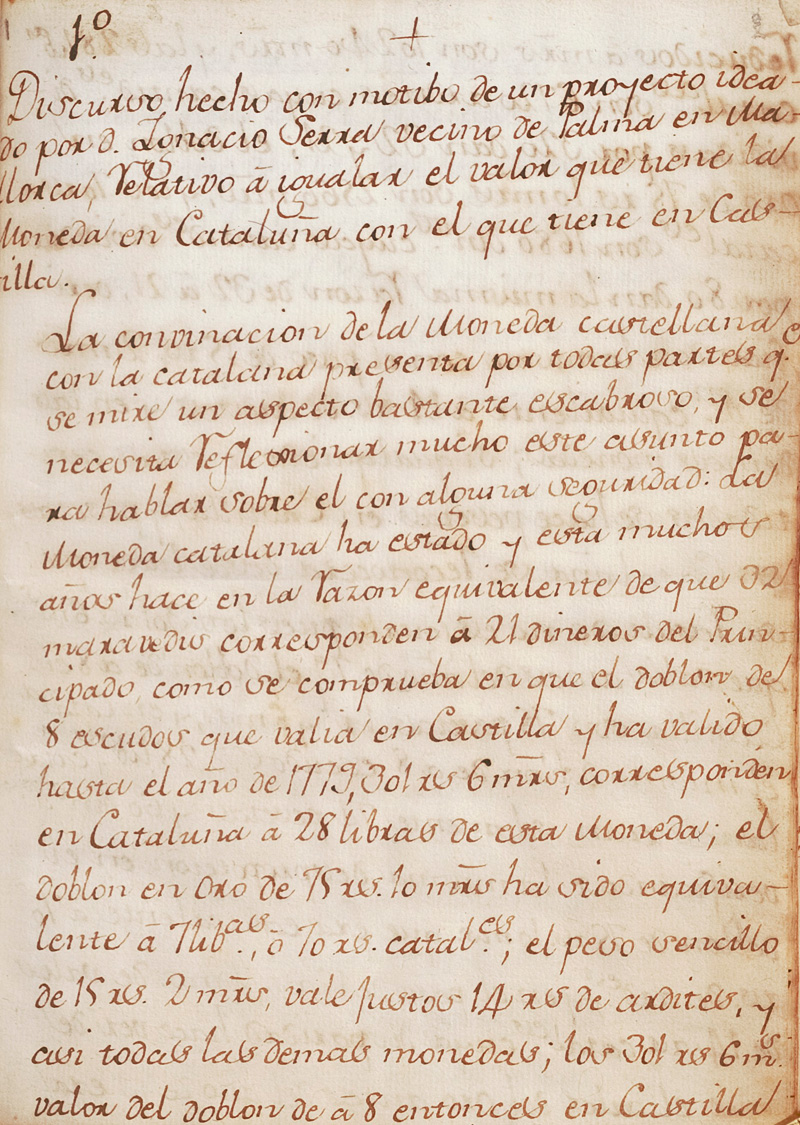 1º +
Discurso, hecho con motibo de un proyecto idea-
do por d. Ignacio Serra vecino de Palma en Ma-
llorca, Relativo â igualar el valor que tiene la
Moneda en Cataluña con el que tiene en Cas-
tilla.
La convinacion de la Moneda castellana
con la catalana presenta por todas partes q.e
se mire un aspecto bastante escabroso, y se
necesita Reflexionar mucho este asunto pa-
ra hablar sobre el con alguna seguridad: La
Moneda catalana ha estado y está muchos
años hace en la Razon equivalente de que 32
maravedis corresponden â 21 dineros del Prin-
cipado, como se comprueba en que el doblon de
8 escudos que valia en Castilla y ha valido
hasta el año de 1779, 301 rs 6 mrs, corresponden
en Cataluña â 28 libras de esta Moneda; el
doblon en Oro de 75 rs. 10 mrs ha sido equiva-
lente â 7 lib.as, ô 70 rs. catal.es; el peso sencillo
de 15 rs. 2 mrs, vale justos 14 rs de ardites, y
asi todas las demas monedas; los 301 rs 6 m.s
valor del doblon de â 8 entonces en Castilla